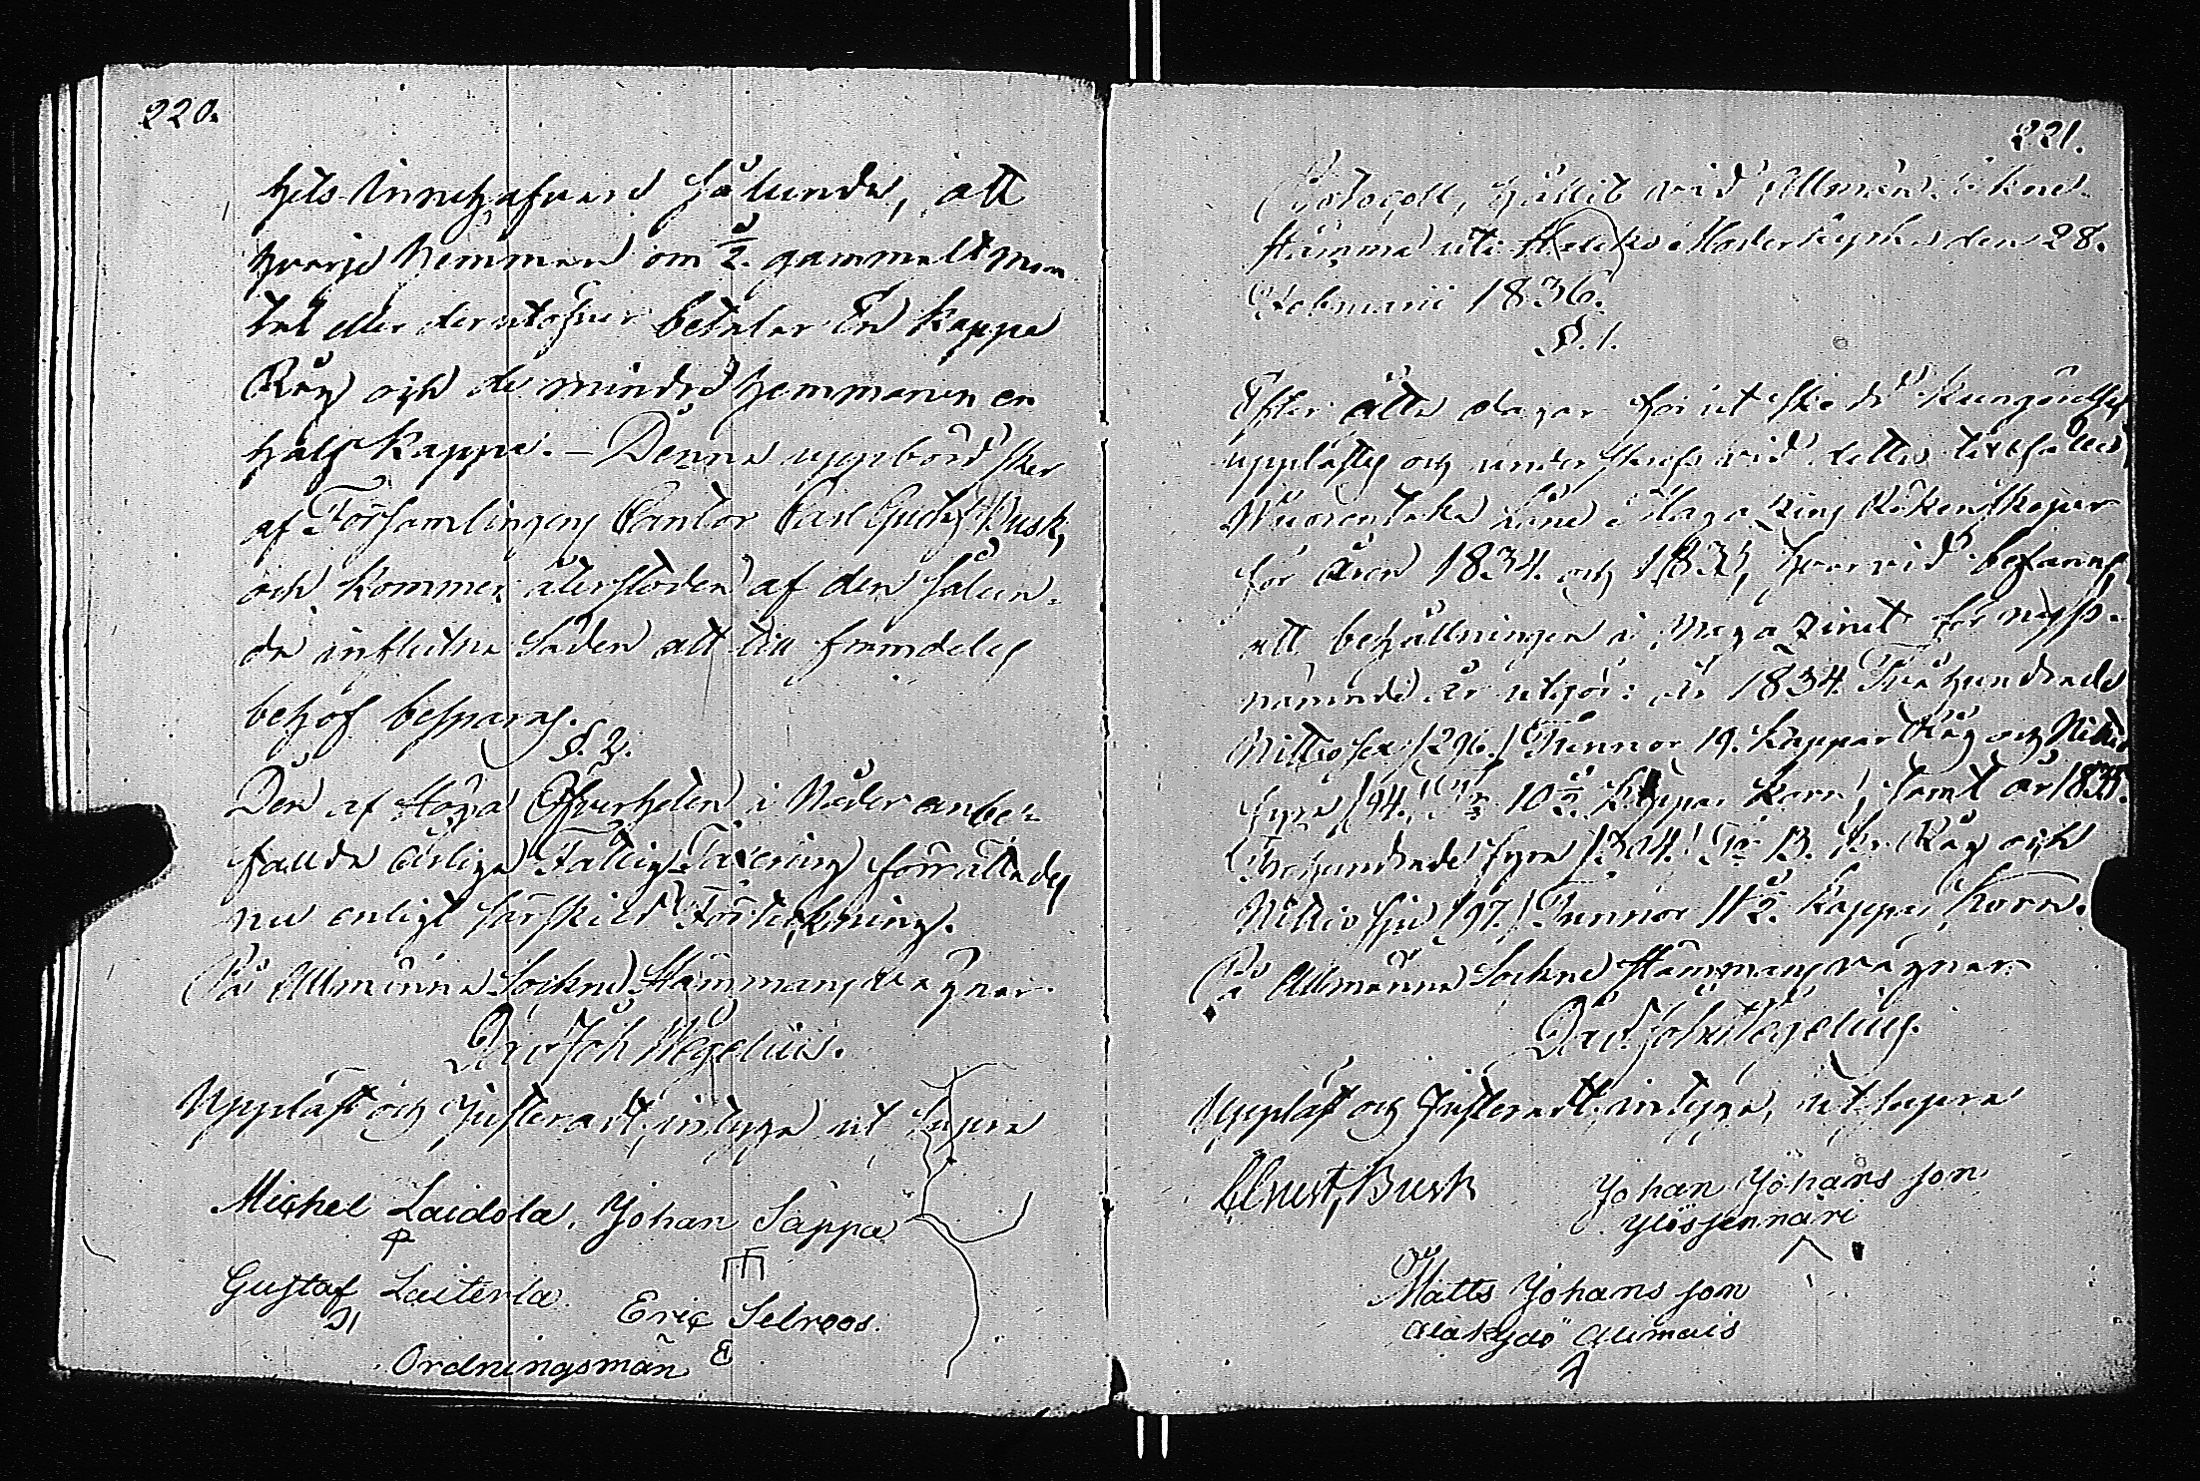 220.
tets Innehafvare sålunda, att
hvarje hemman om 1/2. gammalt man
tal eller derutöfver betalar En Kappa
Råg och de mindre hemmanen en
half Kappa. – Denna uppbörd sker
af Församlingens Cantor Carl Gustaf Busk,
och kommer återstoden af den sålun-
da influtna Säden att till framdeles
behof besparas.
§. 2.
Den af Höga Öfverheten i Nåder anbe-
fallda årliga Fattig Taxering förrättades
nu enligt särskild Förteckning.
På Allmänna Sockne Stämmans vägnar.
Dav Joh Wegelius.
Uppläst och Justeradt, intyga ut Supra
Michel Laidola. Johan Sappa
Gustaf Laiterla. Eric Selroos.
Ordningsmän
221.
Protocoll, hållit vid Allmän Sockne
stämma uti Moderkyrka den 28.
Februarii 1836.
§. 1.
Efter åtta dagar förut skedd Kungörelse
upplästes och underskrefs vid dettes tillfälle
Låne Magazins Räkenskaper
för Åren 1834. och 1835, hvarvid befanns,
att behållningen i Magazinet för nyss-
nämnde år utgör: År 1834. Tvåhundrade
Nittiosex /296./ Tunnor 19. Kappar Råg och Nittio
fyra /94./ Tr 10 1/2 Kappar Korn, samt år 1835.
Trehundrade fyra /304./ Tr 13. Kr. Råg och
Nittiosju /97./ Tunnor 11 1/2. Kappar Korn.
På Allmänna Sockne Stämmans vägnar.
Dav. Joh Wegelius.
Uppläst och Justeradt, intyga, ut supra
Busk Johan Johans son
Ylösjennäri
Matts Johans son
Alakylö Alimais